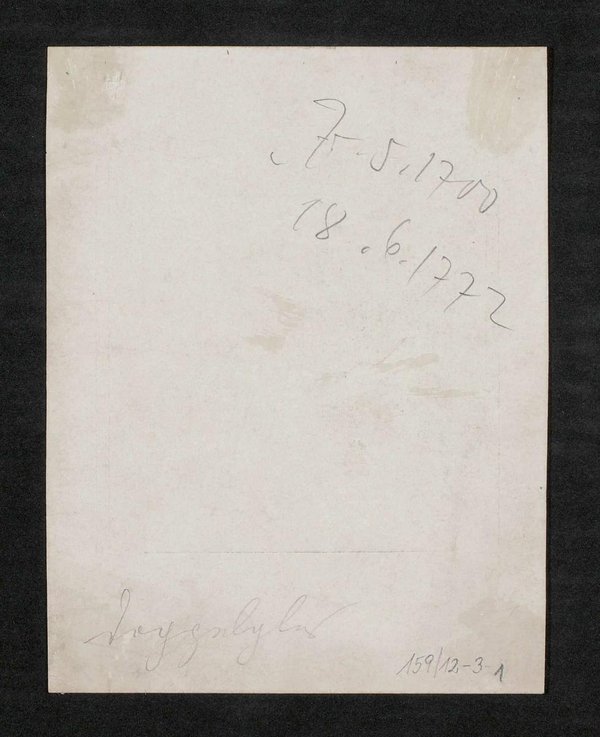 7.5.1700
18.6.1772
159/12-3-1